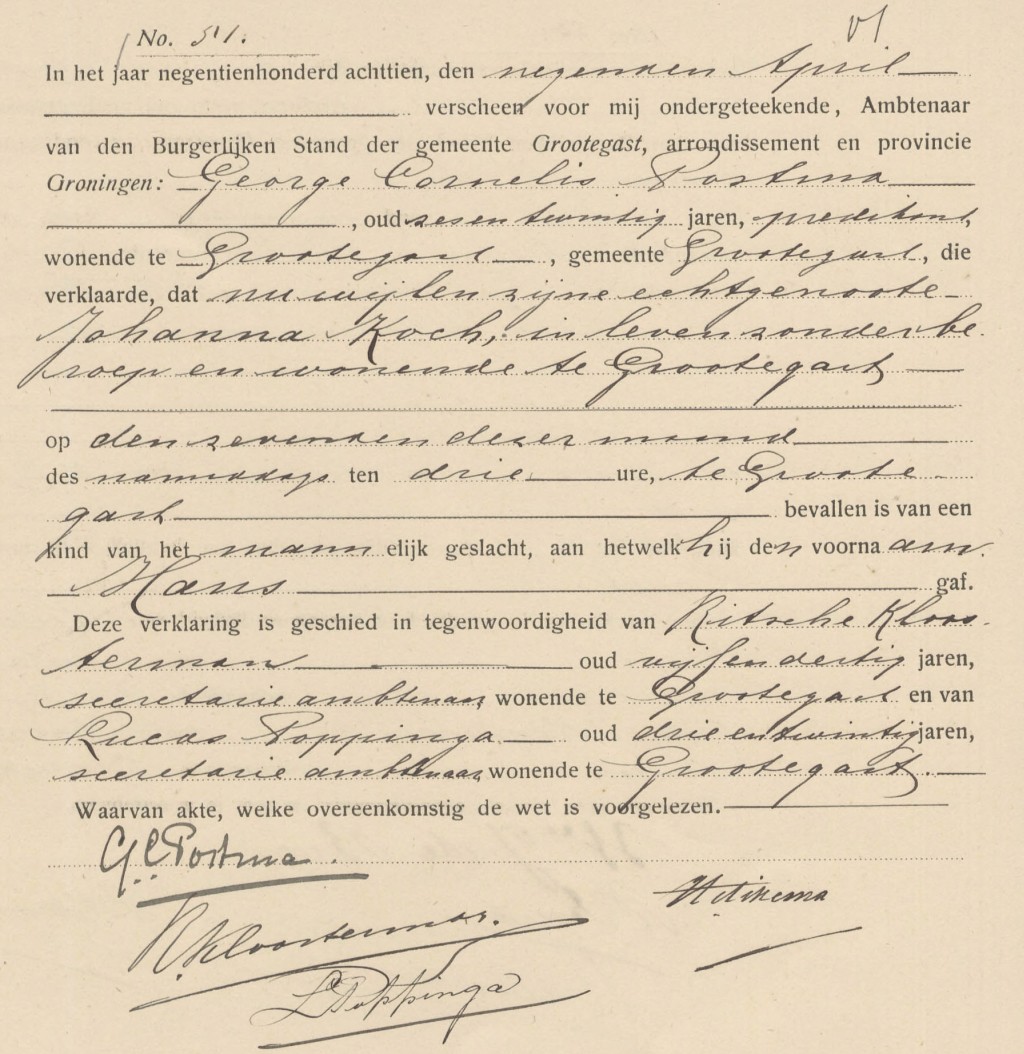 No. 51.
In het jaar negentienhonderd achttien, den negenden April
verscheen voor mij ondergeteekende, Ambtenaar
van den Burgerlijken Stand der gemeente Grootegast, arrondissement en provincie
Groningen: George Cornelis Postma
, oud zesentwintig jaren, predikant,
wonende te Grootegast, gemeente Grootegast, die
verklaarde, dat nu wijlen zijne echtgenoote
Johanna Koch, in leven zonder be-
roep en wonende te Grootegast
op den zevenden dezer maand
des namiddags ten drie ure, te Groote-
gast bevallen is van een
kind van het mannelijk geslacht, aan hetwelk hij den voornaam
Hans gaf.
Deze verklaring is geschied in tegenwoordigheid van Ritsche Kloos-
terman oud vijfendertig jaren,
secretarie ambtenaar, wonende te Grootegast en van
Lucas Poppinga oud drieentwintig jaren,
secretarie ambtenaar, wonende te Grootegast.
Waarvan akte, welke overeenkomstig de wet is voorgelezen.
G. C. Postma.
R. Kloosterman.
L Poppinga